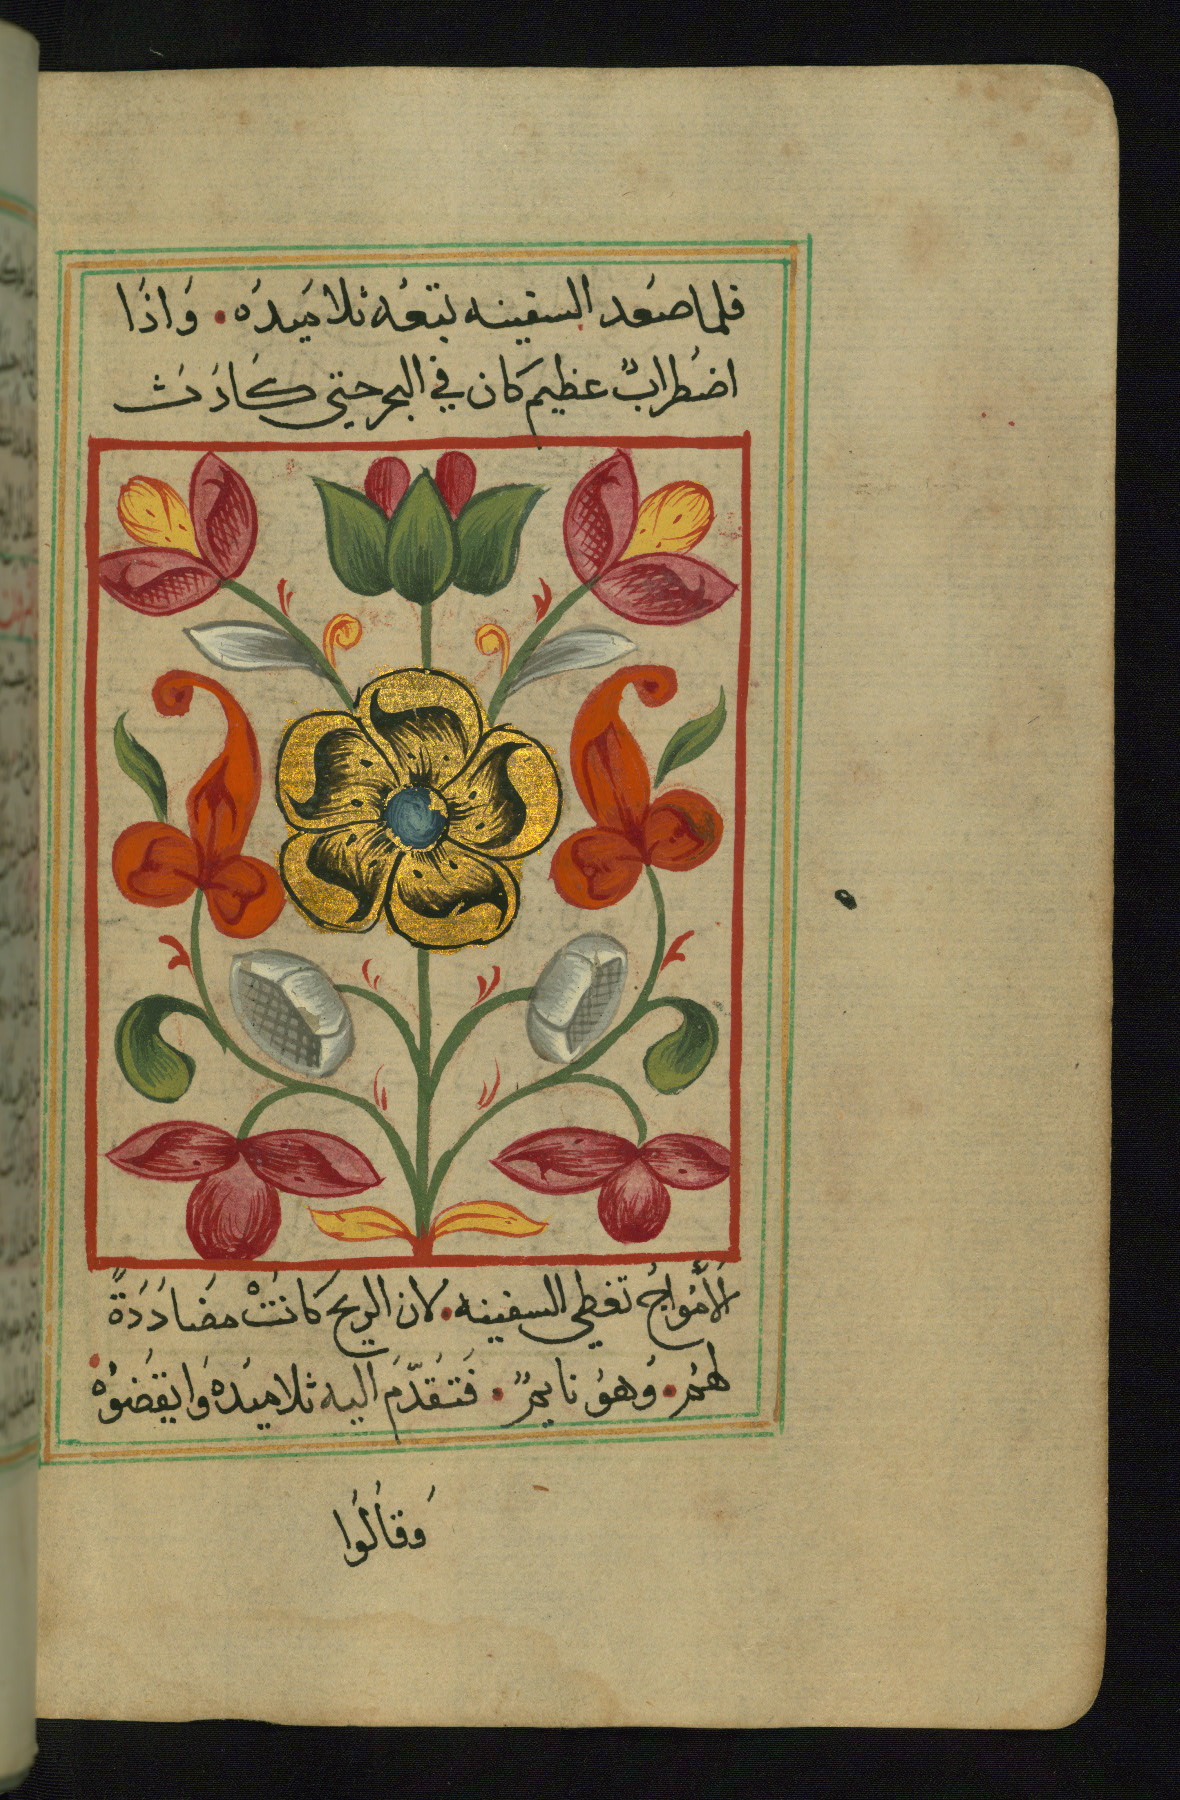 فلما صَعد السفينه تبَعُه تلامَيدَه • وَاذَا
اضُطرابٌ عظيم كان في البحر حتي كَادَت
الأمُواجُ تغطي السفينه • لان الريح كانَتْ مضَادَدَةً
لهُم • وَهوُ نايمٌ • فَتقَدّمَ اليه تلاميَدهُ وَايقَضوُه
وَقَالُوَا